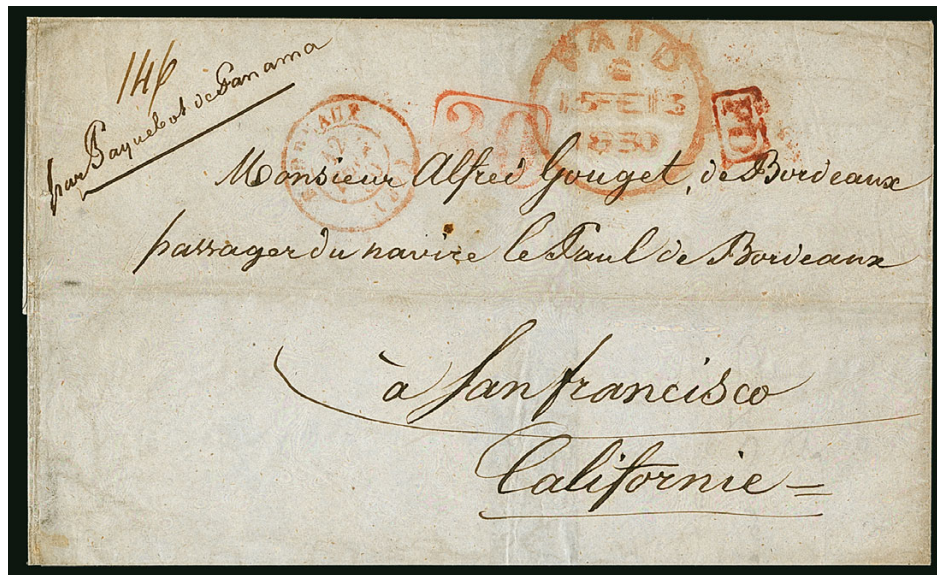 146
par Paquebot de Panama
BORDEAUX
12
30
PAID
15 FE 13
1850
PD
Monsieur Alfred Gouget, de Bordeaux
passager du navire le Paul de Bordeaux
à San francisco
Californie